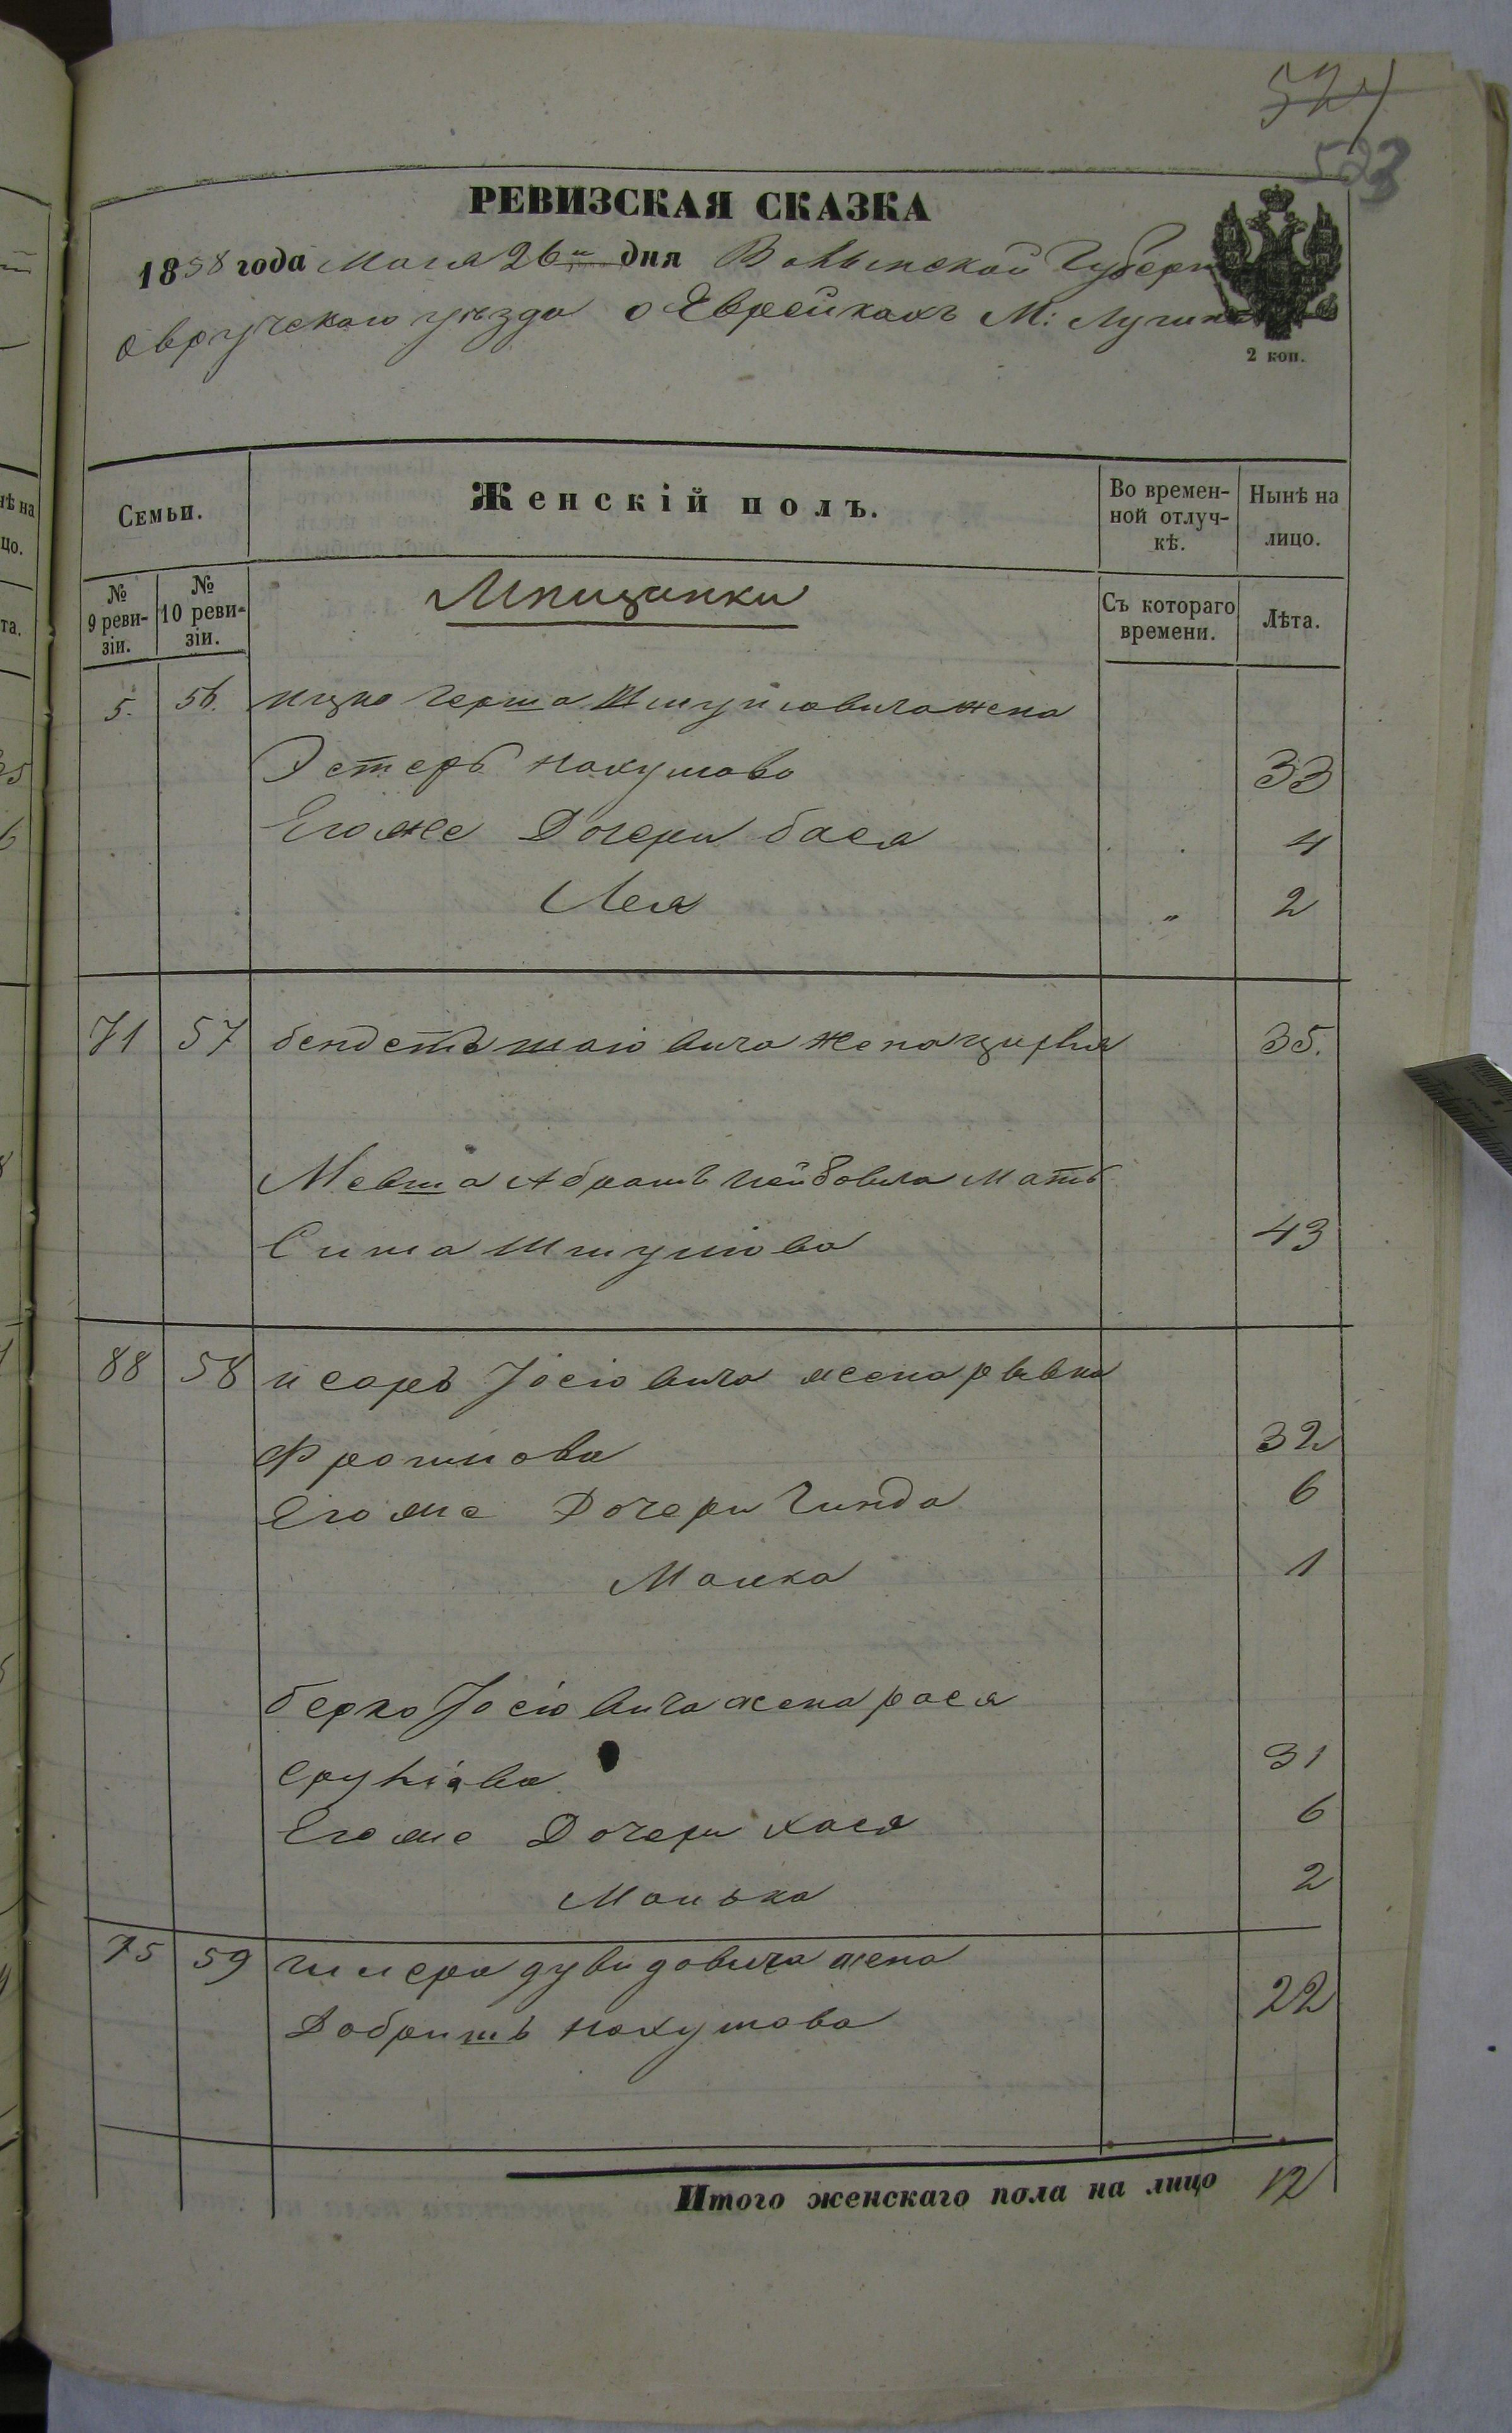 524
523
РЕВИЗСКАЯ СКАЗКА
1858 года Мая 26го дня Волынской Губерн
Овручского уѣзда о Еврейкахъ М: Лугинъ
2 коп.
Семьи. Женскій полъ. Во времен-ной отлуч-кѣ. Нынѣ на лицо.
№ 9 реви-зіи. № 10 реви-зіи. Мѣщанки Съ котораго времени. Лѣта.
5. 56. Ицко Герша Шмуйловича жена
Эстеръ Нахумова 33
Его же Дочери бася 4
Лея " 2
71 57 бендетъ шаіовича жена цирля 35.
Мевша Абрамъ Лейбовича Мать
Сима Шмуліова 43
88 58 исаръ Іосіовича жена рывка
Фроимова 32
Его же Дочери Гинда 6
Малка 1
берко Іосіовича жена рася
Сруліова 31
Его же Дочери хася 6
Малька 2
75 59 дувидовича жена
Добришъ Нахумова 22
Итого женскаго пола на лицо 12